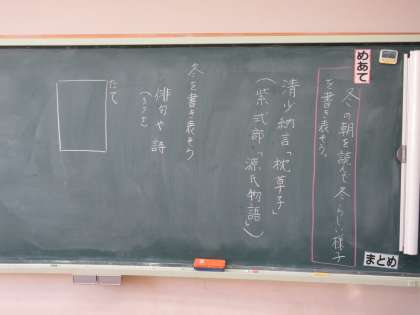 めあて
冬の朝を読んで冬らしい様子
を書き表そう。
清少納言「枕草子」
(紫式部「源氏物語」)
冬を書き表そう
俳句や詩
たて
まとめ